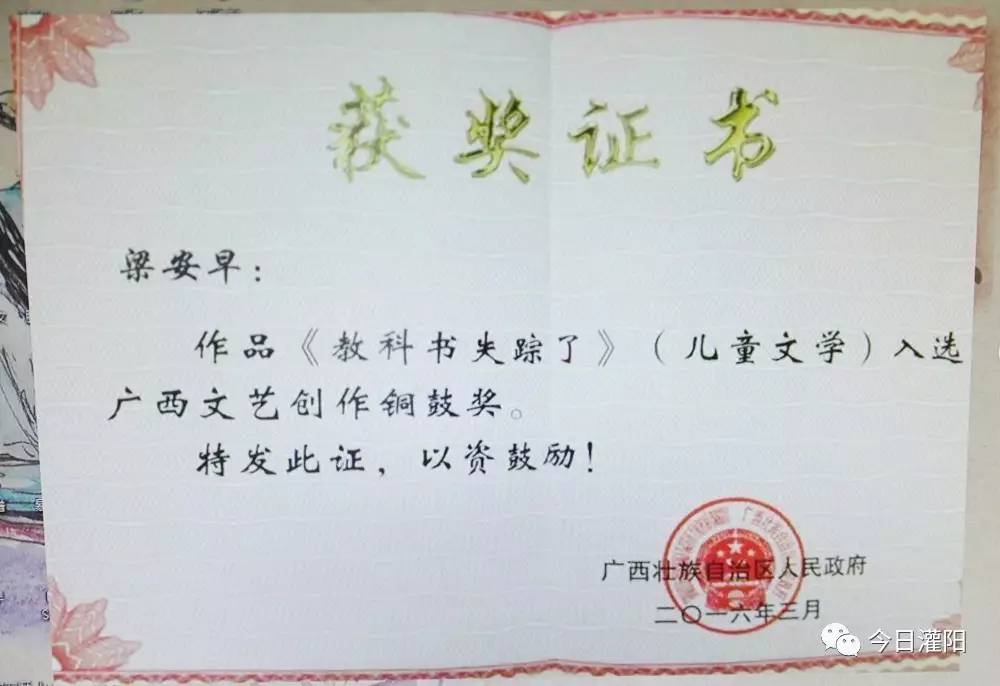 获奖证书
梁安早：
作品《教科书失踪了》（儿童文学）入选
广西文艺创作铜鼓奖。
特发此证，以资鼓励！
广西壮族自治区人民政府
二〇一六年三月
今日灌阳